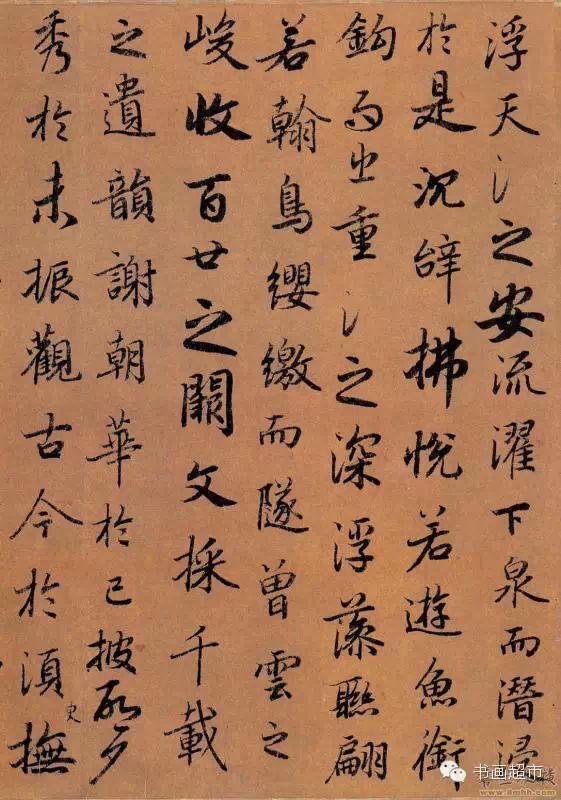 浮天氵之安流濯下泉而潛浸
於是沉辞拂悅若遊魚銜
鈎而出重氵之深浮藻聮翩
若翰鳥纓繳而隧曾雲之
峻收百廿之闕文採千載
之遺韻謝朝華於已披啓夕
秀於未振觀古今於須臾撫
书画超市